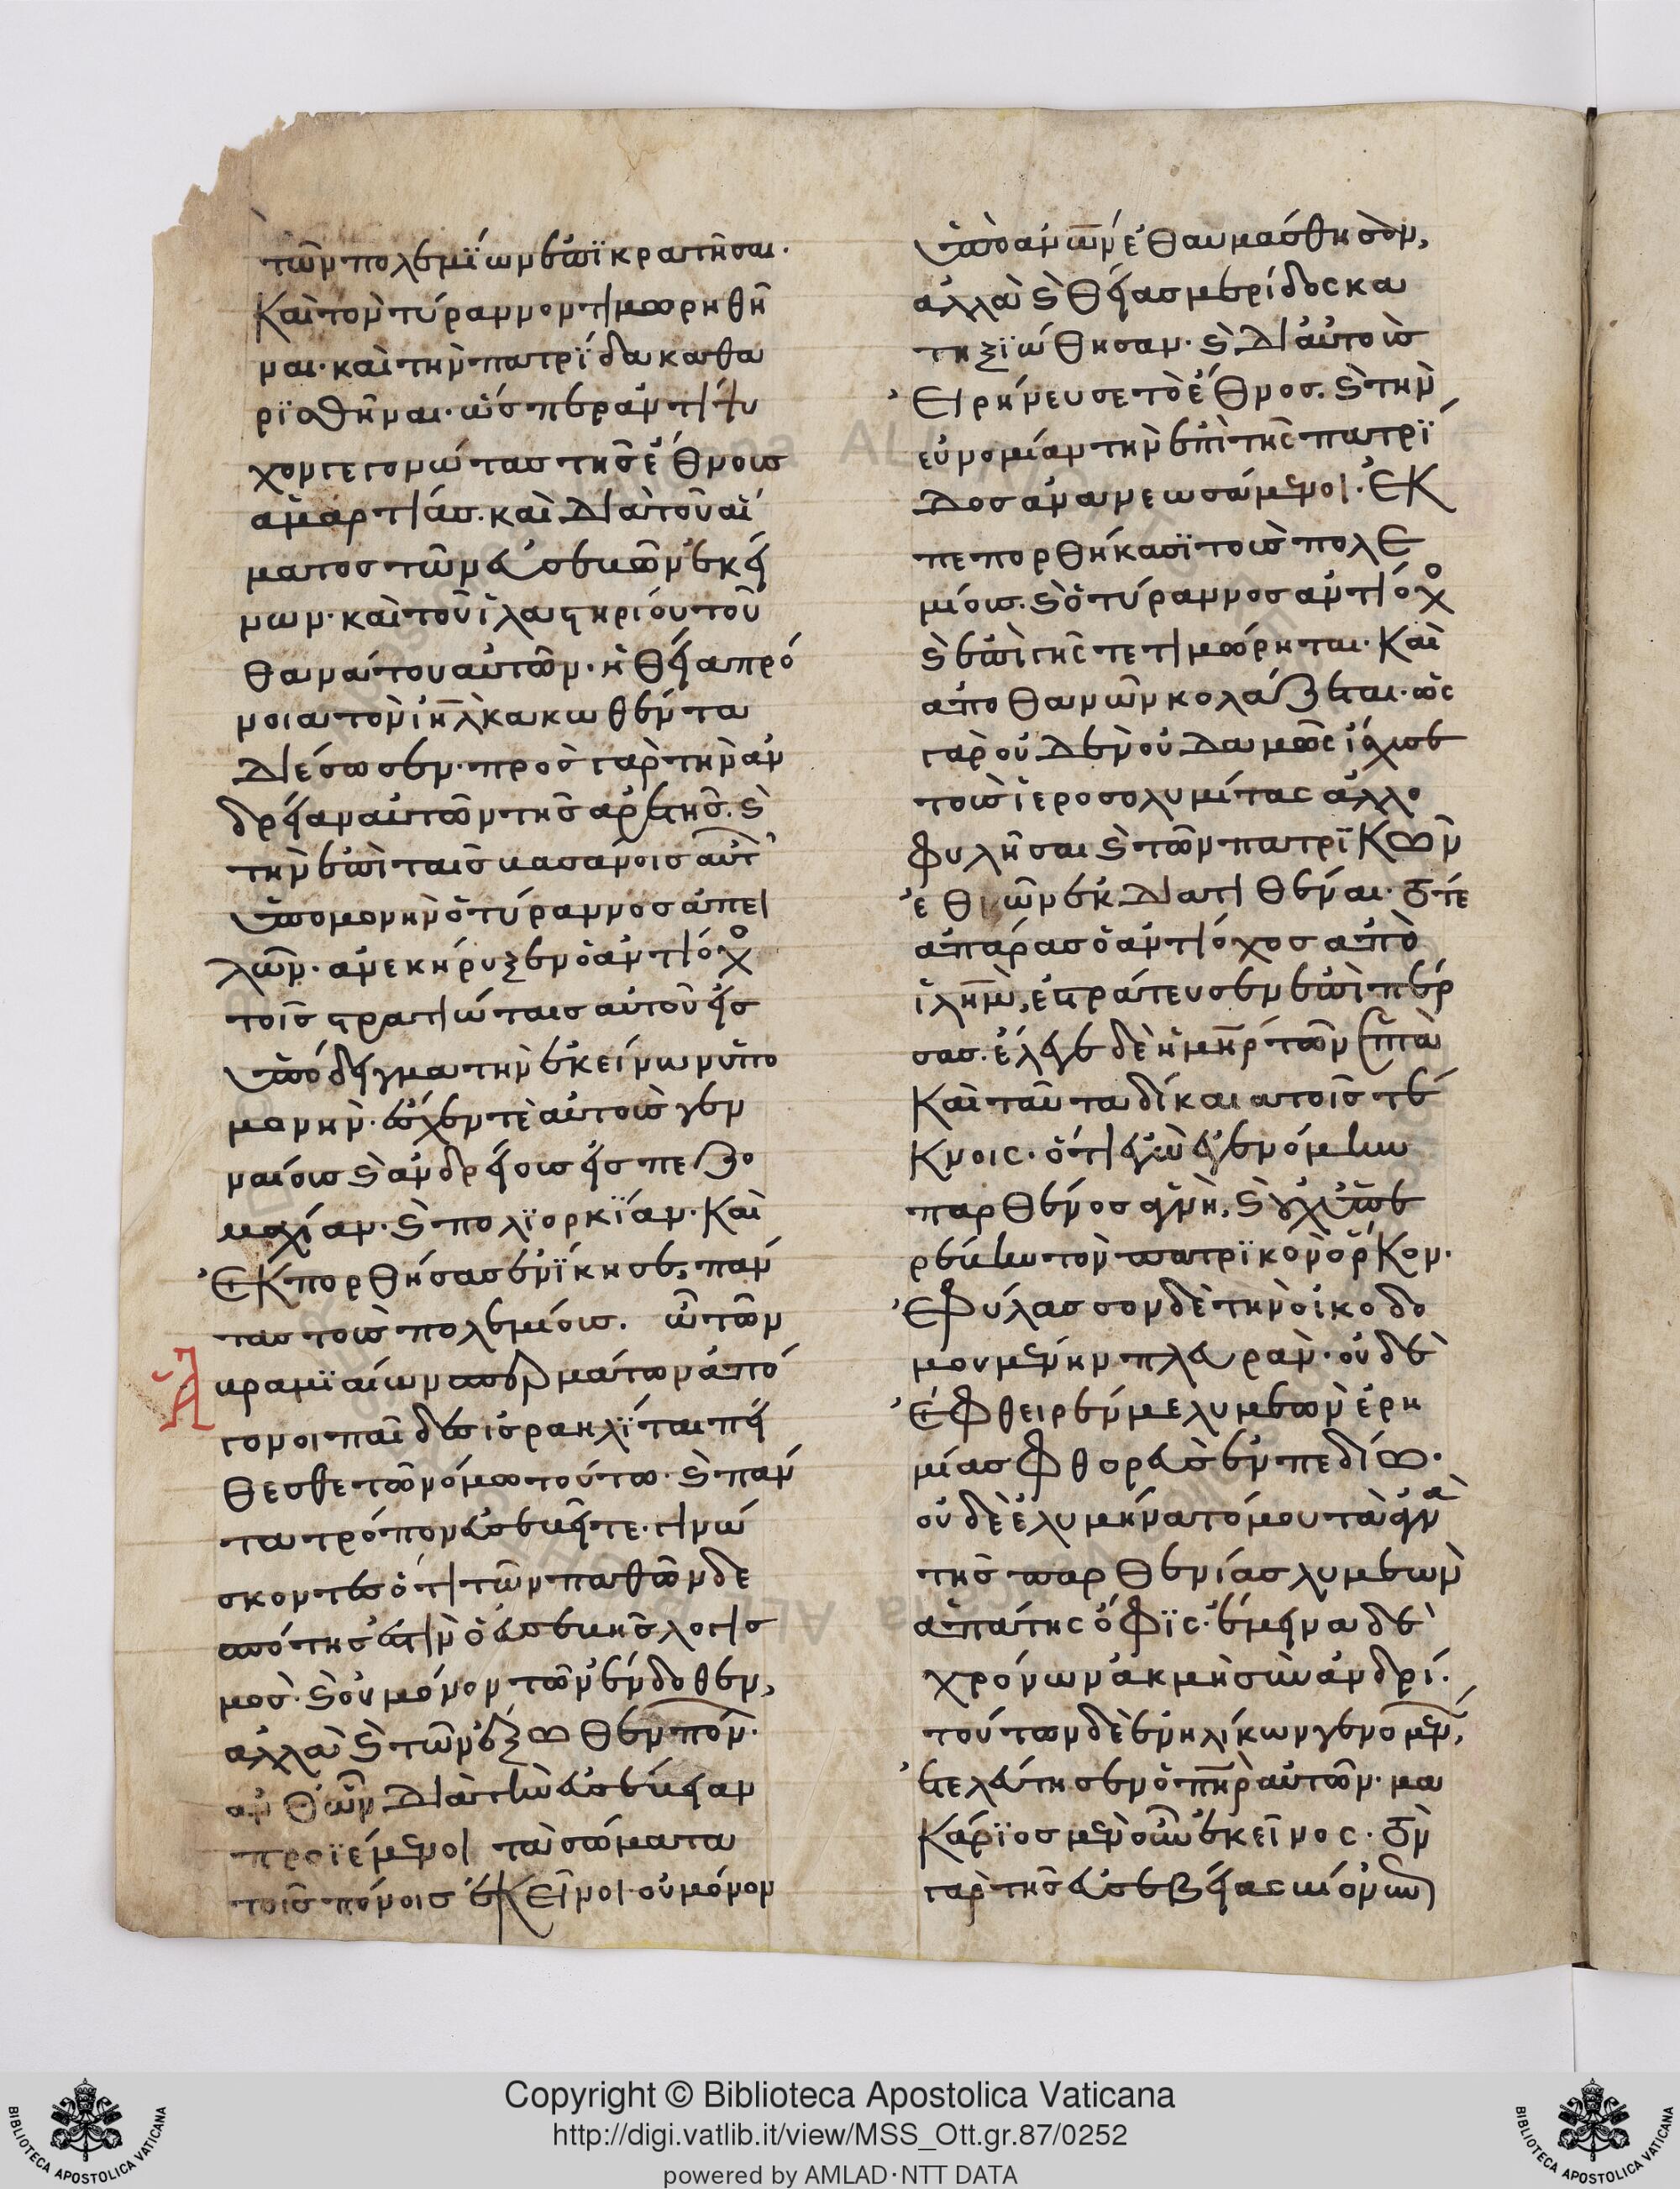 τῶν πολεμΐων ἐπϊκρατῆσαι·
Καὶ τὸν τύραννον τιμωρηθῆ
ναι· καὶ τὴν πατρΐδα καθα
ρϊσθῆναι· ὥσπερ ἀντίψυ
χον γεγονώτας τῆς ἔθνους
ἁμαρτίας· καὶ διὰ τοῦ αἵ
ματος τῶν εὐσεβῶν ἐκεί
νων· καὶ τοῦ ἱλαστηρίου τοῦ
θανάτου αὐτῶν· ἡ θεία πρό
νοια τὸν ιηλ κακωθέντα
διέσωσεν· πρὸς γὰρ τὴν ἀν
δρείαν αὐτῶν τῆς ἀρετῆς· ϗ
τὴν ἐπὶ ταῖς βασάνοις αὐτ
ὑπομονὴν ὁ τύραννος ἀπει
λῶν· ἀνεκήρυξεν ὁ ἀντίοχο
τοῖς στρατιώταις αὐτοῦ εἰς
ὑπόδειγμα τὴν ἐκείνων ὑπο
μονήν· ἔσχεν τὲ αὐτοὺς γεν
ναίους ϗ ἀνδρείους εἰς πεζο
μαχίαν· ϗ πολϊορκΐαν· Καὶ
ἐκπορθήσας ἐνΐκησε, πάν
τας τοὺς πολεμίους. ὦ τῶν
ἁβραμϊαίων σπερμάτων ἀπό
γονοι παῖδες ἰσραηλΐται πεί
θεσθε τῶ νόμω τούτω· ϗ πάν
τα τρόπον εὐσεβεῖτε· γινώ
σκοντες ὅτι τῶν παθῶν δε
σπότης ἐστὶν ὁ εὐσεβὴς λογισ
μός· ϗ οὐ μόνον τῶν ἔνδοθεν,
ἀλλὰ ϗ τῶν ἔξωθεν πόν·
ἀνθῶν διὰ τὴν εὐσέβειαν
προϊέμενοι τὰ σώματα
τοῖς πόνοις ἐκεῖνοι· οὐ μόνον
ὑπὸ ἀνων ἐθαυμάσθησαν,
ἀλλὰ ϗ θείας μερίδος κα
τηξϊώθησαν· ϗ δι αὐτοὺς
Εἰρήνευσε τὸ ἔθνος. ϗ τὴν
εὐνομίαν τὴν ἐπὶ τῆς πατρΐ
δος ἀνανεωσάμενοι· ἐκ
πεπορθήκασϊ τοὺς πολε
μίους· ϗ ὁ τύραννος ἀντίοχο
ϗ ἐπὶ γῆς τετιμώρηται· Καὶ
ἀποθανῶν κολάζεται· ὡς
γὰρ οὐδὲν οὐδαμῶς ἴσχυσε
τοὺς ἱεροσολυμίτας ἀλλο
φυλῆσαι ϗ τῶν πατρϊκῶν
ἐθῶν ἐκδιατιθέναι· τότε
ἀπάρας ὁ ἀντίοχος ἀπὸ
ἱλημ, ἐστράτευσεν ἐπὶ πέρ
σας. ἔλεγε δὲ ἡ μηρ τῶν ἑπτὰ
Καὶ ταῦτα δίκαια τοῖς τέ
Κνοις· ὅτι ἐγὼ ἐγενόμην
παρθένος ἁγνὴ, ϗ οὐχ ὑπε
ρέβην τὸν πατρϊκὸν οἶκον·
Ἐφύλασσον δὲ τὴν οἰκοδο
μουμένην πλευράν· οὐδὲ
Ἔφθειρέν με λυμεὼν ἐρη
μίας φθορεὺς ἐν πεδίω·
οὐδὲ ἐλυμήνατό μου τὰ ἁγνὰ
τῆς παρθενίας λυμεὼν
ἀπάτης ὄφϊς· ἔμεινα δὲ
χρόνων ἀκμὴς ὺν ἀνδρί·
τούτων δὲ ἐνηλίκων γενομέν,
ἐτελεύτησεν ὁ πηρ αὐτῶν· μα
Κάρϊος μὲν οὖν ἐκεῖνος· τὸν
γὰρ τῆς εὐσεβείας βίον ὢν
Copyright © Biblioteca Apostolica Vaticana
http://digi.vatlib.it/view/MSS_Ott.gr.87/0252
powered by AMLAD·NTT DATA
BIBLIOTECA APOSTOLICA VATICANA
BIBLIOTECA APOSTOLICA VATICANA